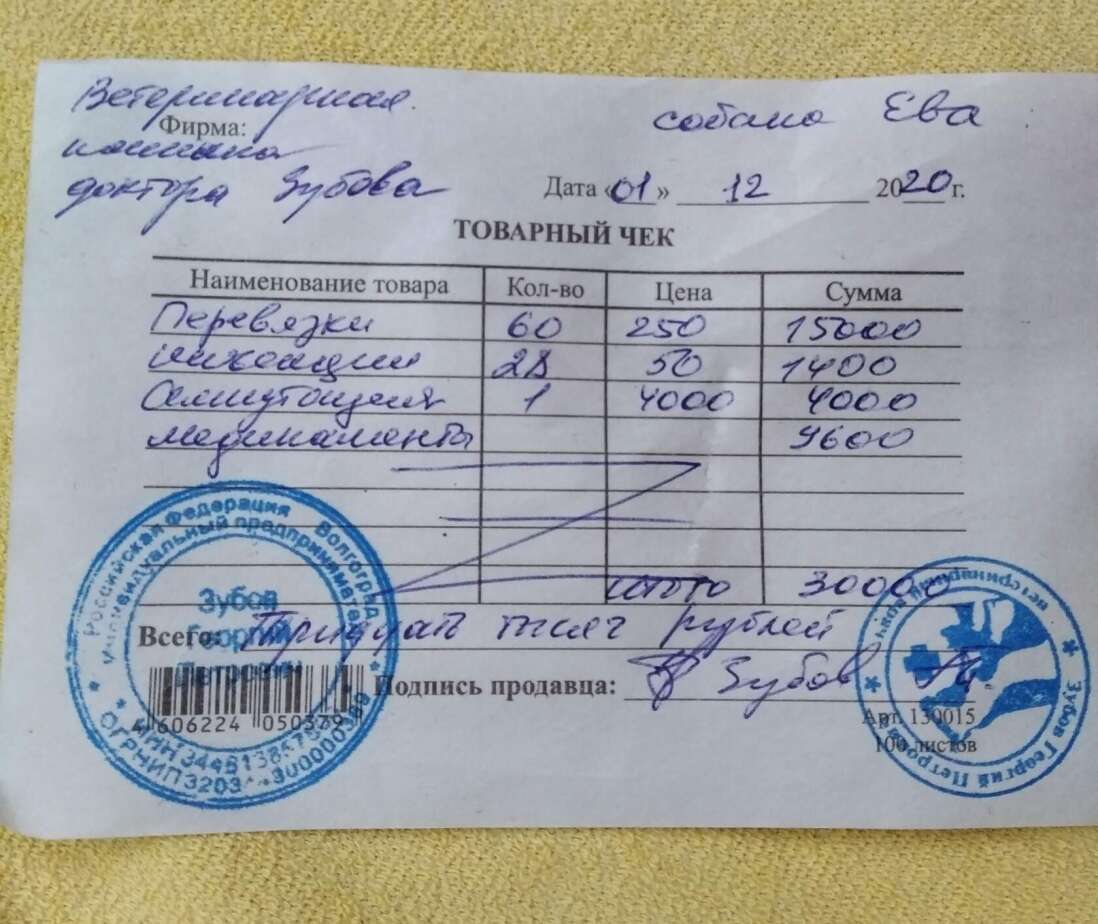 Ветеринарная
собака Ева
Фирма:
клиника
доктора Зубова
Дата «01» 12 2020 г.
ТОВАРНЫЙ ЧЕК
Наименование товара Кол-во Цена Сумма
Перевязки 60 250 15000
инъекции 28 50 1400
Ампутация 1 4000 4000
медикаменты 9600
итого 30000
Всего: Тридцать тысяч рублей
Подпись продавца: Зубов
Арт. 130015
100 листов
4 606224 050379
Российская Федерация Волгоград
Индивидуальный предприниматель
Зубов
Георгий
Петрович
ветеринарный врач
Зубов Георгий Петрович